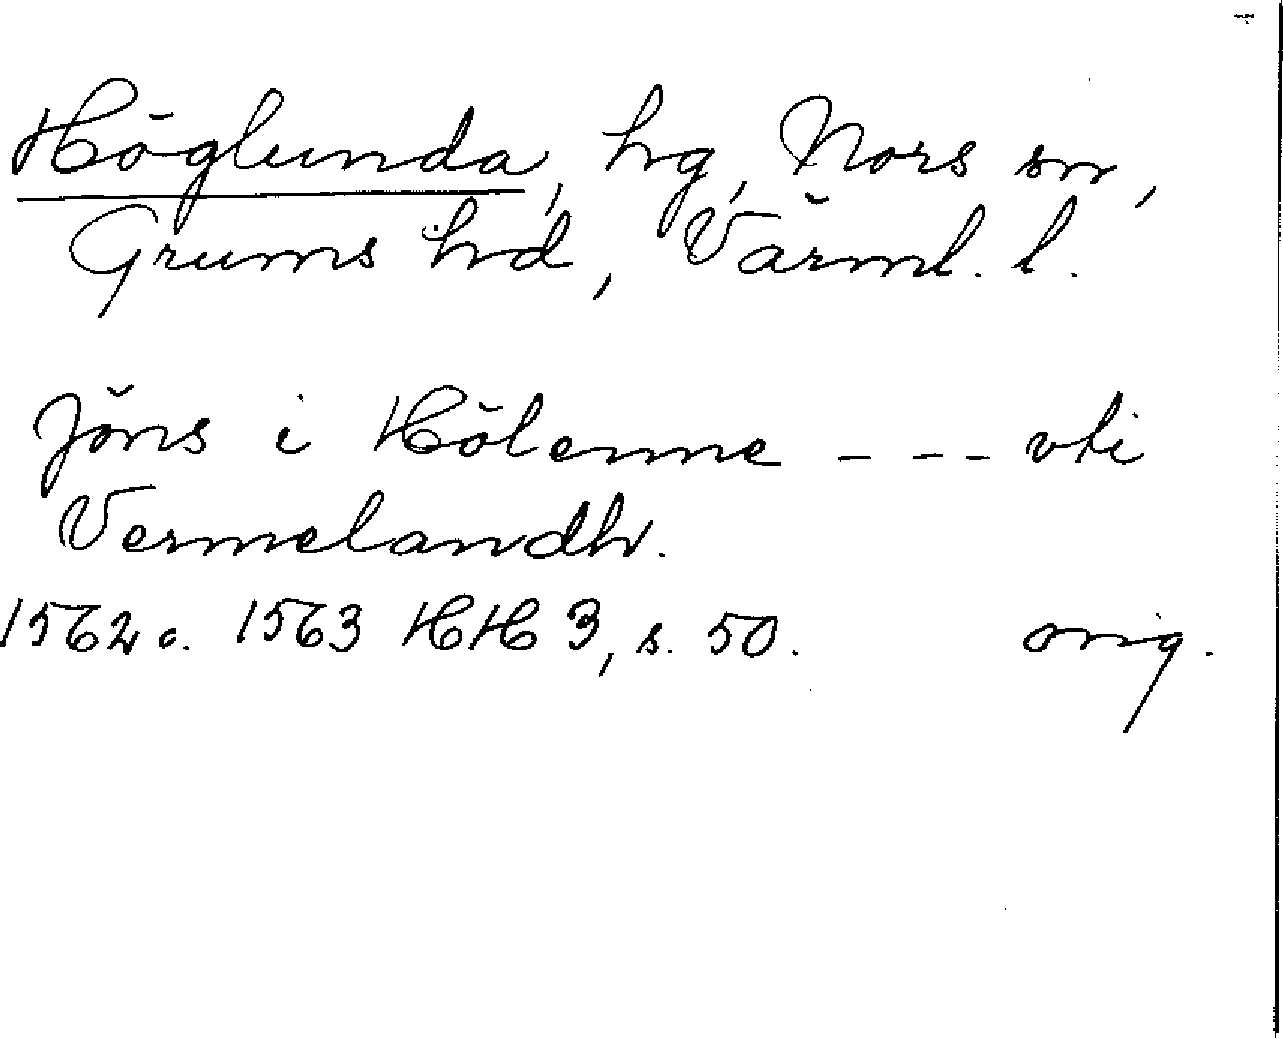 Höglunda, hg, Nors sn,
Grums hd, Värml. l.
Jöns i Hölenne - - - vti
Vermelandh.
1562 o. 1563 HH 3, s. 50. orig.